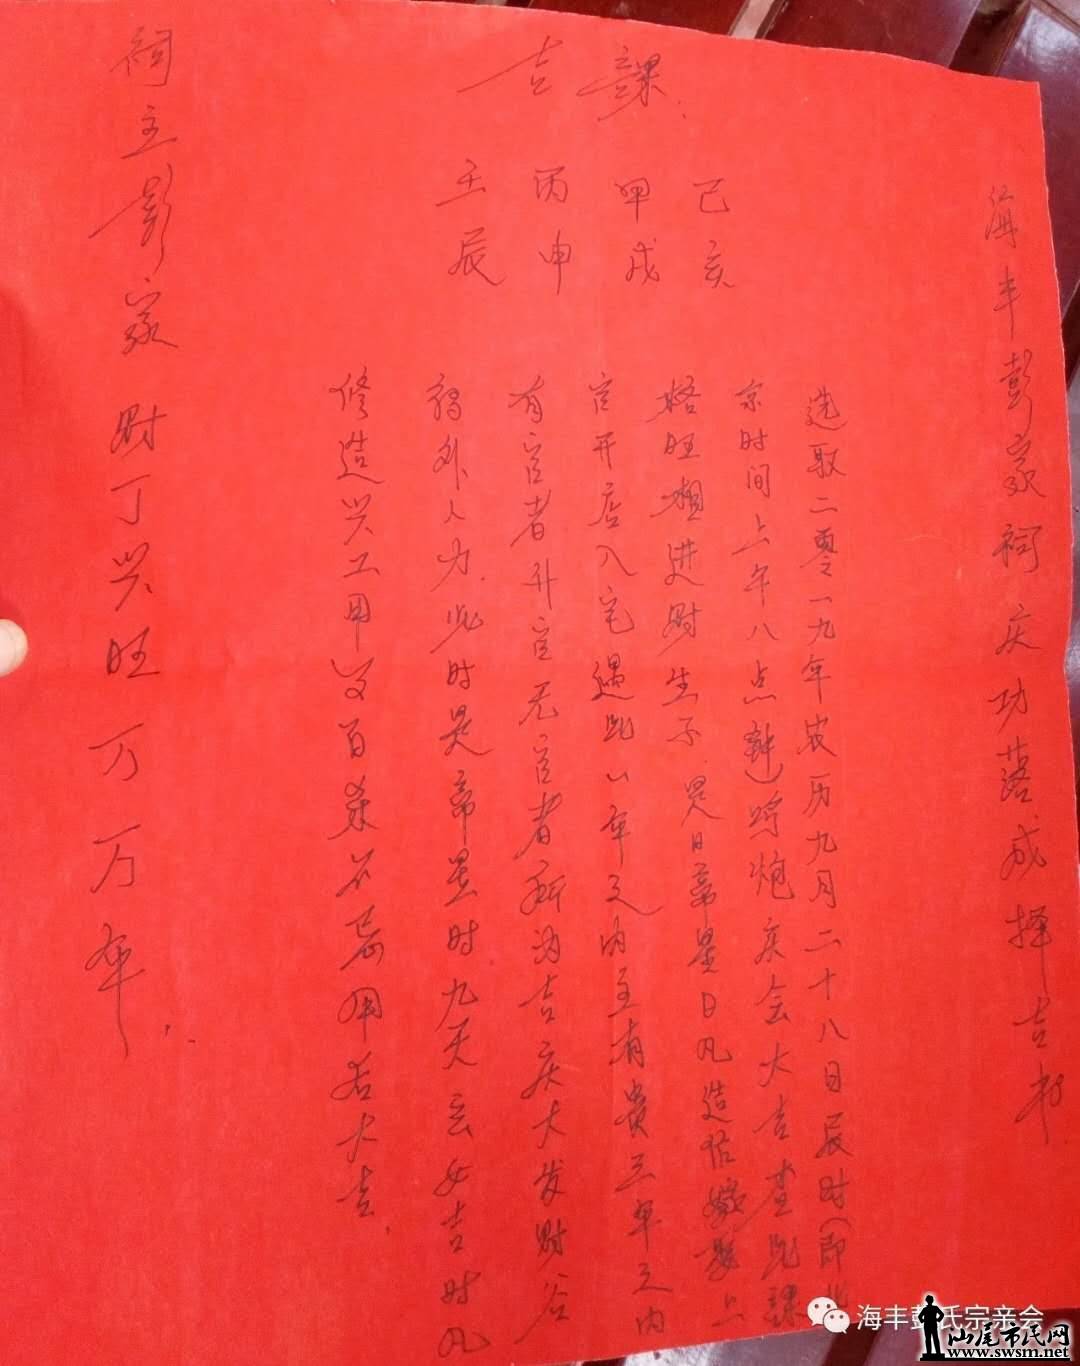 海丰彭家祠庆功落成择吉书
吉課
己亥
甲戌
丙申
壬辰
选取二零一九年农历九月二十八日辰时(即北
京时间上午八点钟)鸣炮庆会大吉查此課
格旺相进财生子是日帝星日凡造作嫁娶上
官开店入宅遇此一年之内主有贵三年之内
有官者升官无官者所为吉庆大发财谷
得外人力此时是帝星时九天玄女吉时凡
修造兴工用之百煞不忌用者大吉
祠主彭家财丁兴旺万万年
海丰彭氏宗亲会
汕尾市民网
www.swsm.net